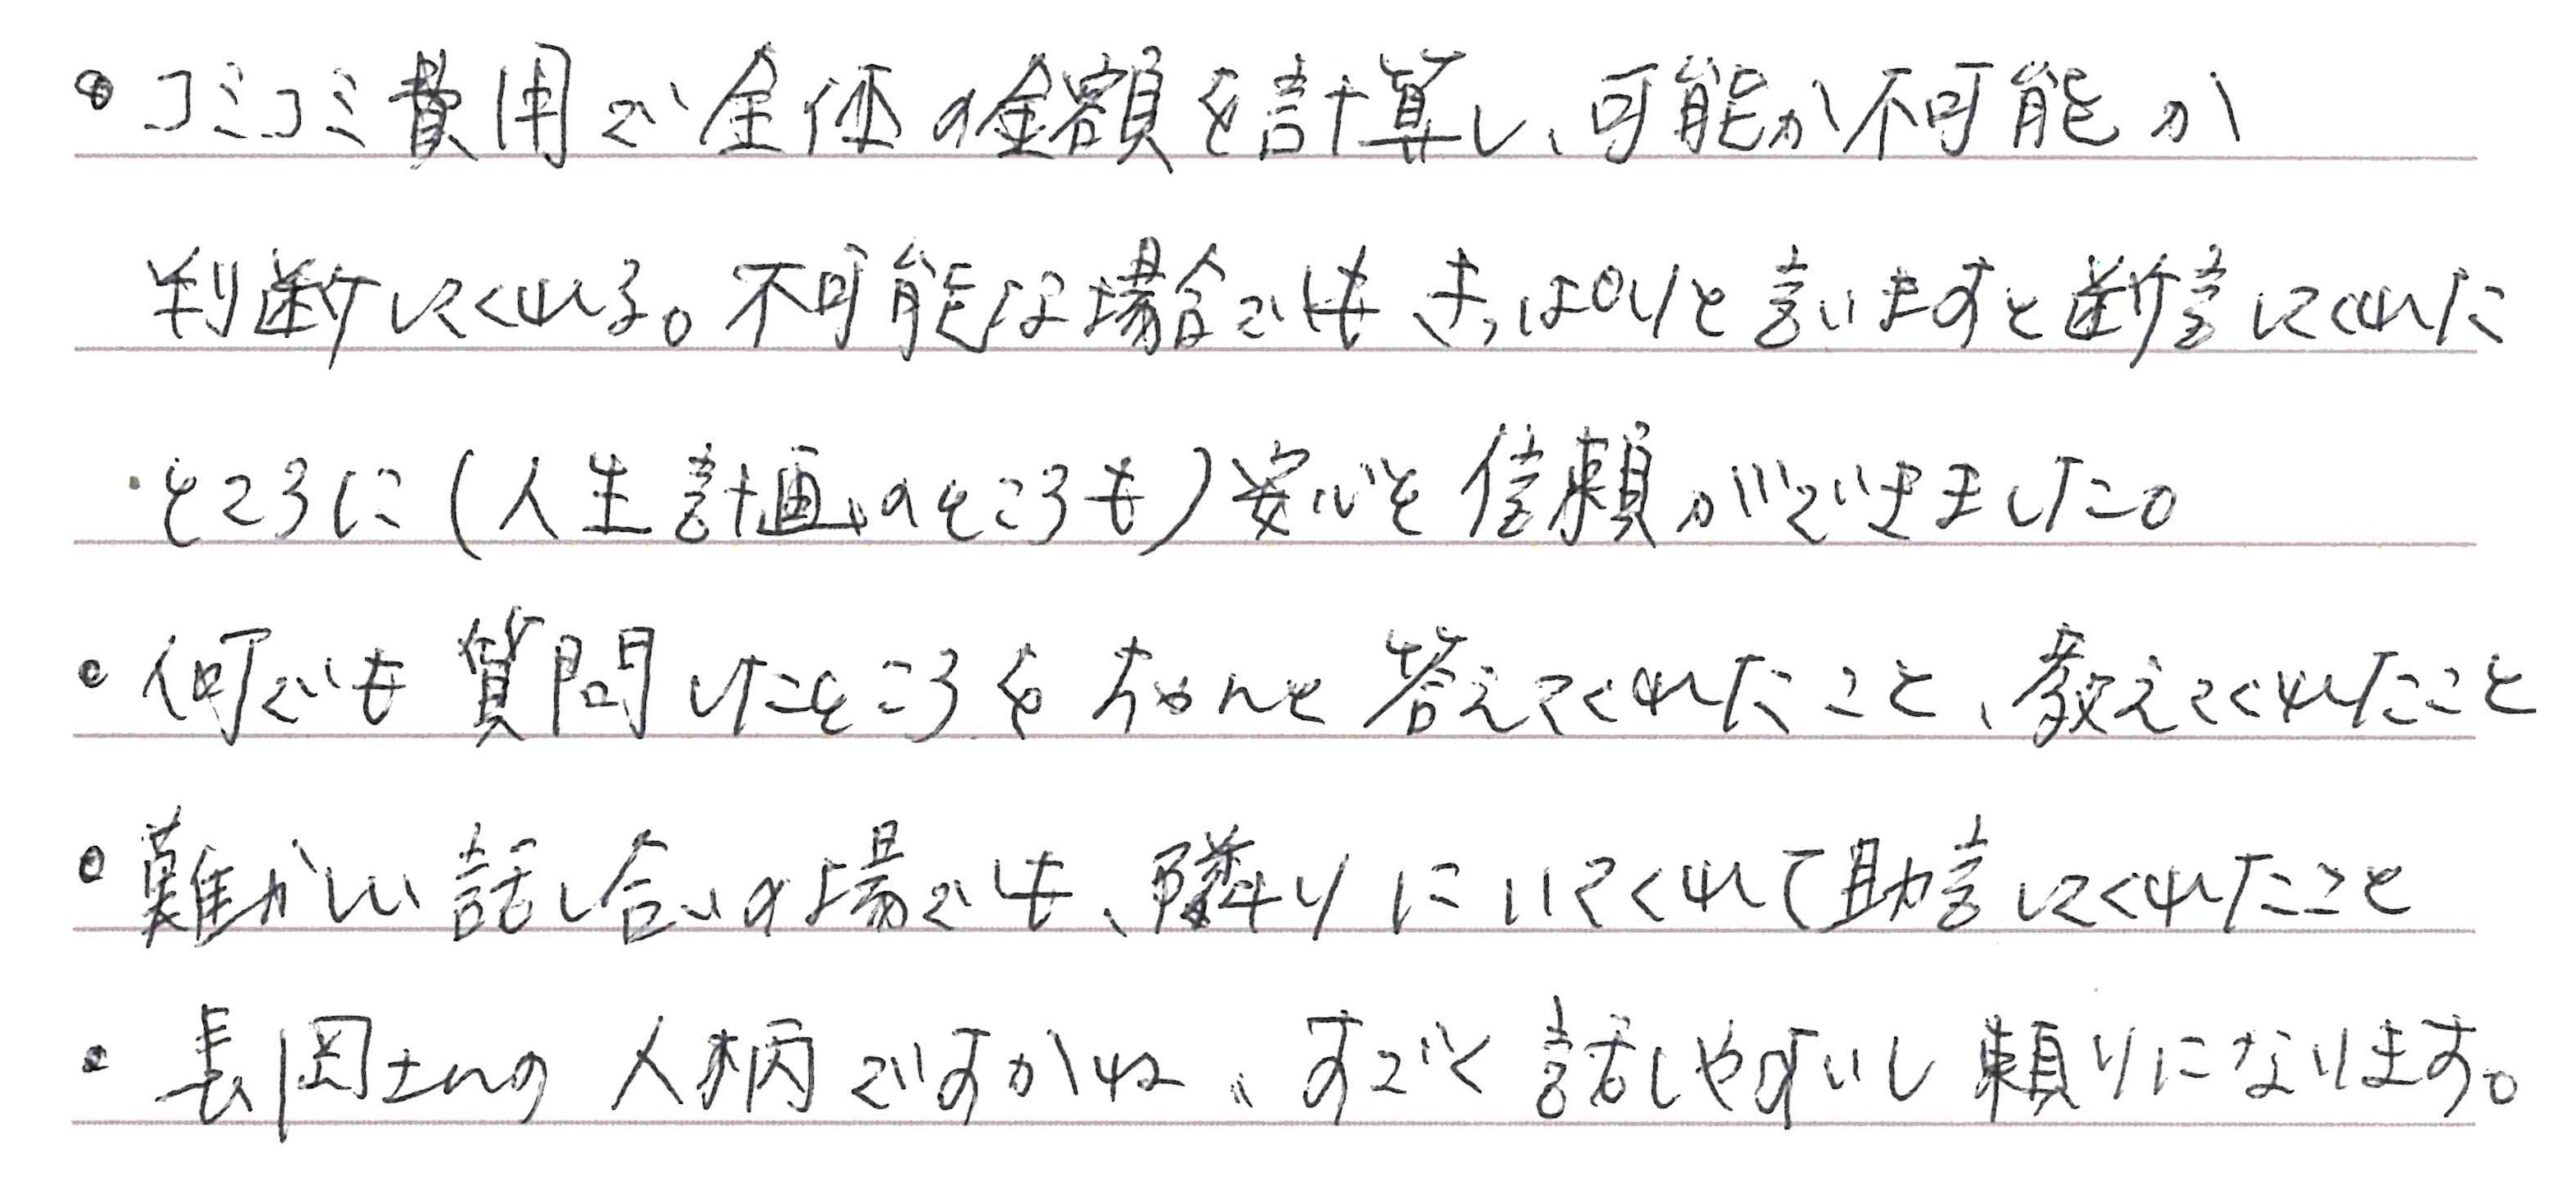 ・コミコミ費用で全体の金額を計算し、可能か不可能か
判断してくれる。不可能な場合でもきっぱりと言いますと断言してくれた
ところに(人生計画のところも)安心と信頼ができました。
・何でも質問したところをちゃんと答えてくれたこと、教えてくれたこと
・難かしい話し合いの場でも、隣りにいてくれて助言してくれたこと
・長岡さんの人柄ですかね、すごく話しやすいし頼りになります。